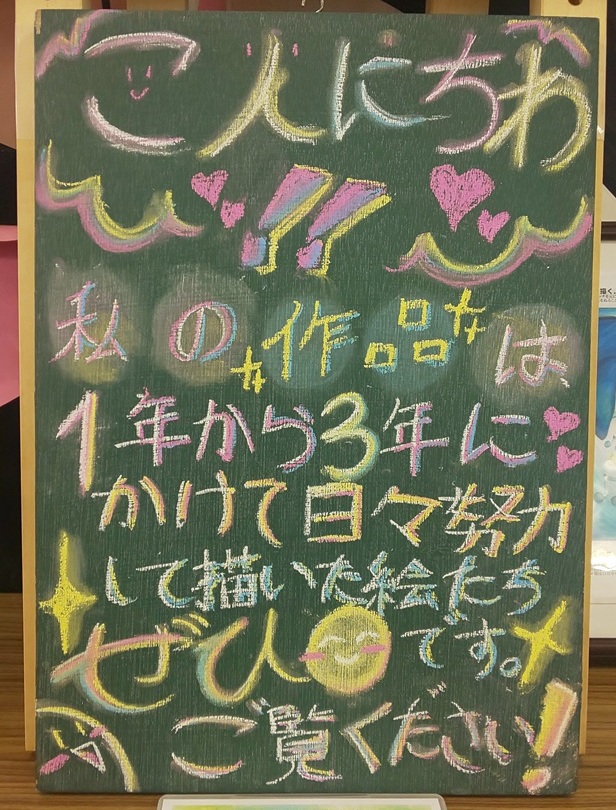 こんにちわ
!!
私の作品は
1年から3年に
かけて日々努力
して描いた絵たち
です。
ぜひ
ご覧ください!
描く